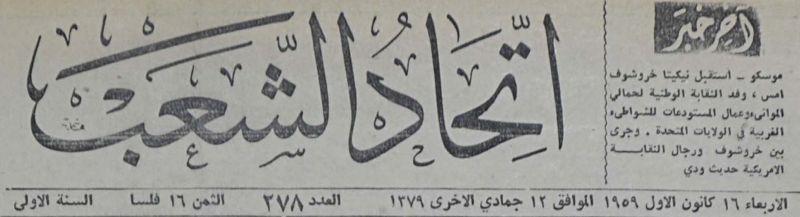 آخر خبر
اتحاد الشعب
موسكو - استقبل نيكيتا خروشوف
امس ، وفد النقابة الوطنية لحمالي
الموانىء وعمال المستودعات للشواطىء
الغربية في الولايات المتحدة . وجرى
بين خروشوف ورجال النقابة
الامريكية حديث ودي
الاربعاء ١٦ كانون الاول ١٩٥٩ الموافق ١٢ جمادي الاخرى ١٣٧٩ العدد ٢٧٨ الثمن ١٦ فلسا السنة الاولى